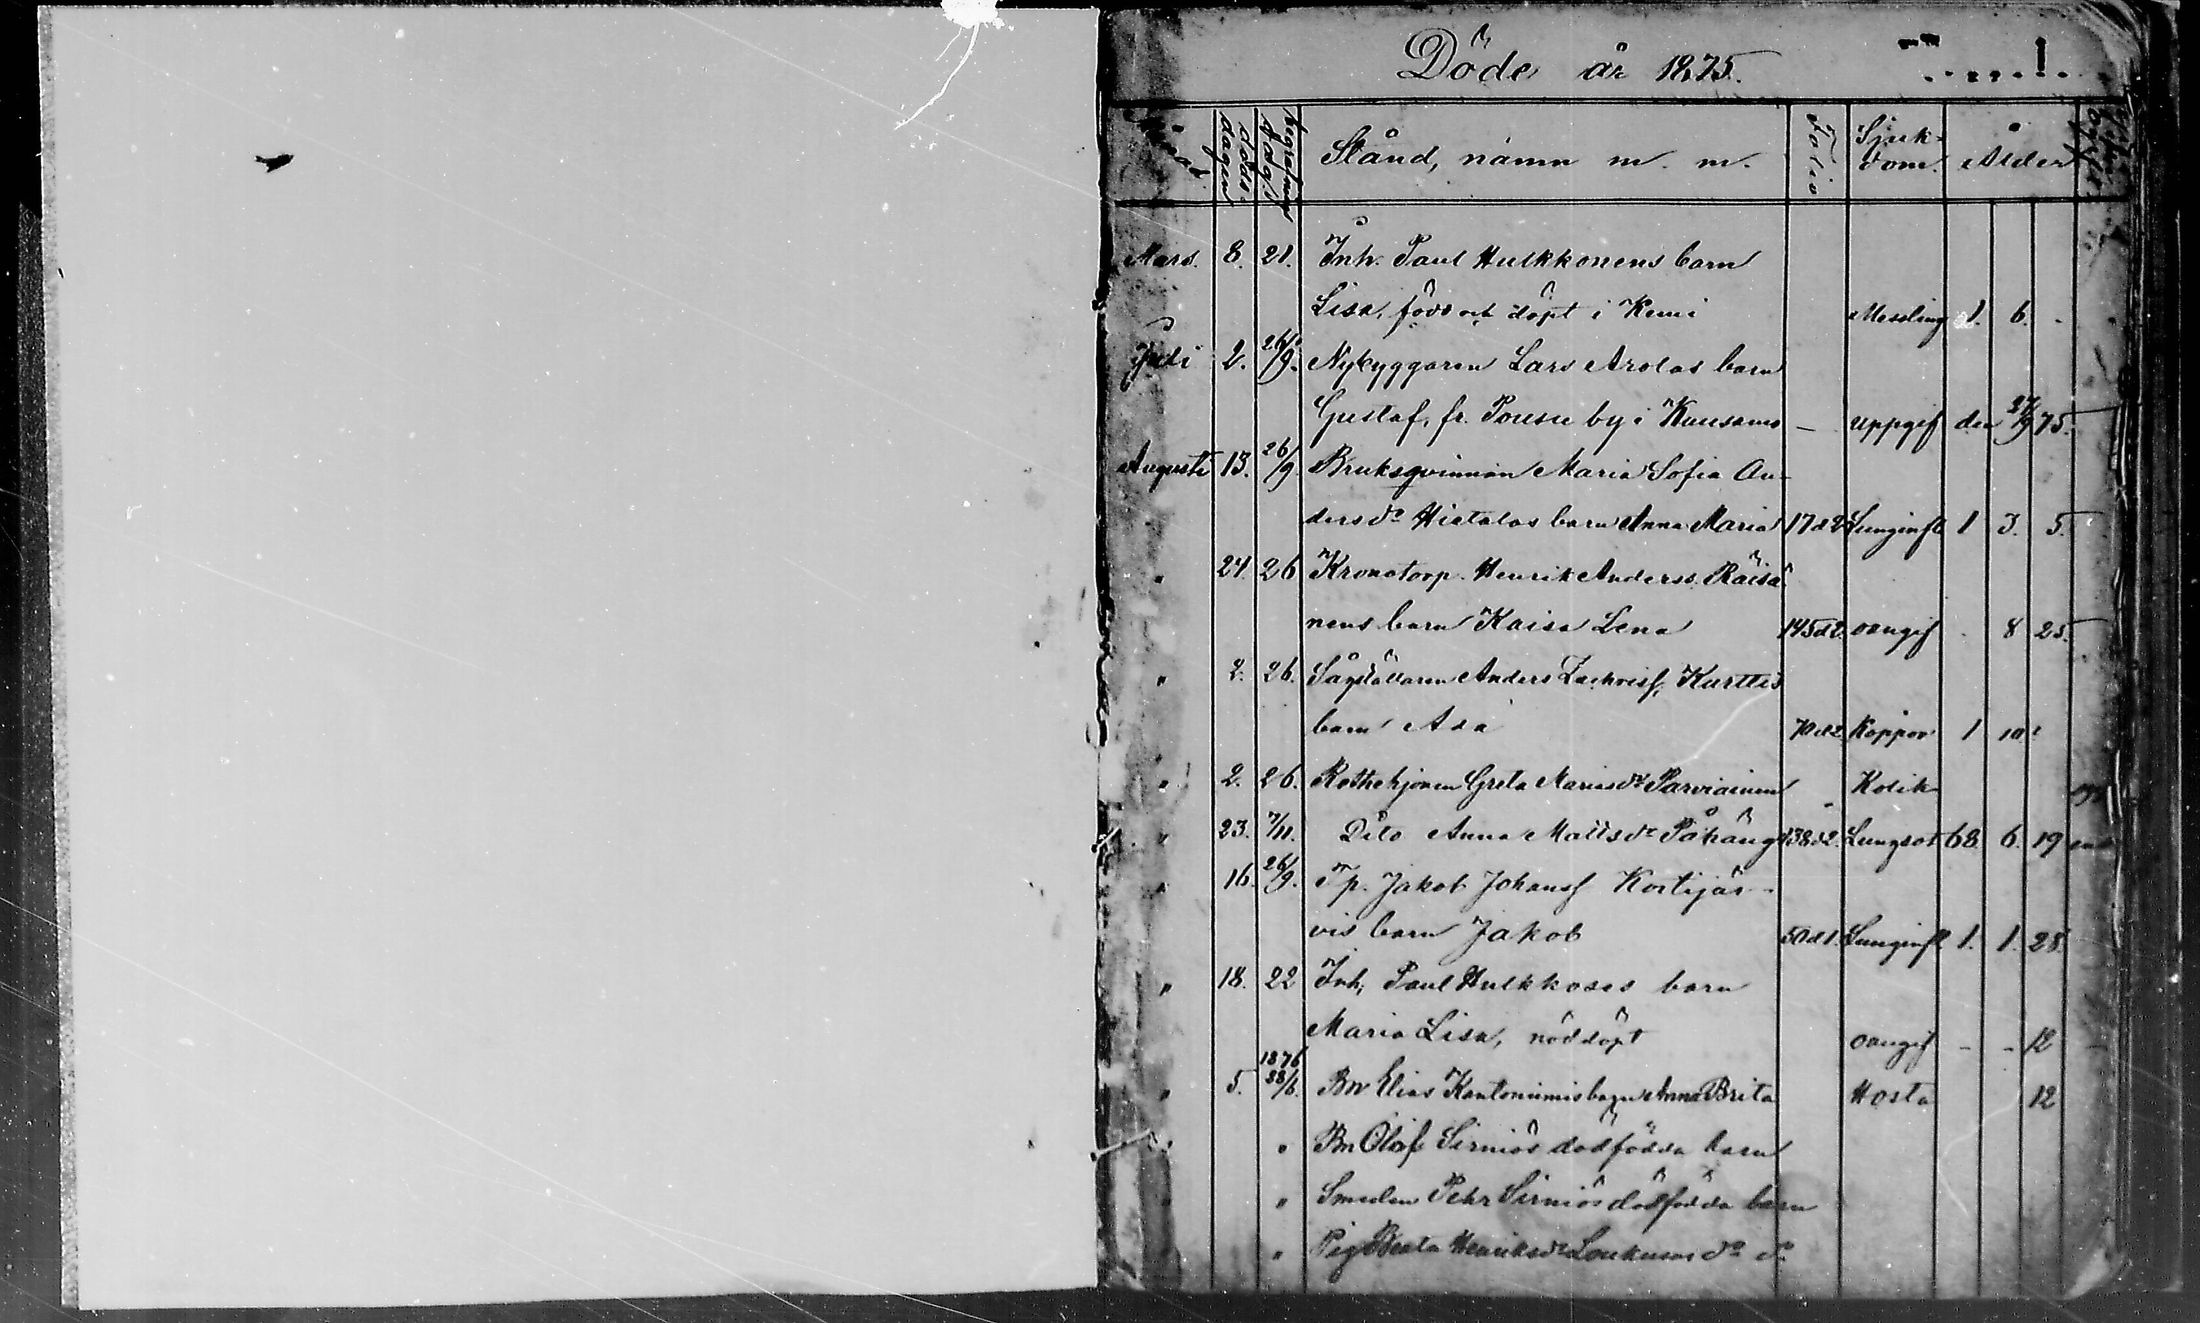 Döde år 1875.
Månad döds dagen begrafnings dag Stånd, namn m. m. Folio Sjukdom. Ålder
Mars. 8. 21. Inh. Paul Hulkkonens barn
Lisa, född och döpt i Kemi Messling 1. 6. -
Juli 2. 26/9. Nybyggaren Lars Arolas barn
Gustaf, fr. Poussu by i Kuusamo - uppgif den 27/9 75.
Augusti 13. 26/9 Bruksqvinnan Maria Sofia An-
dersdr Hietalas barn Anna Maria 17 d 2 Lunginfl 1 3. 5.
" 24 26 Kronotorp. Henrik Anderss. Räisä
nens barn Kaisa Lena 145 d 2. oangif - 8 25.
" 2. 26. Sågställaren Anders Zachrisf. Kurttis
barn Ada 70 d 2 Koppor 1 10
" 2. 26. Rothehjonen Greta Mariasdr Parviainen " Kolik
" 23. 7/11. Dito Anna Mattsdr Påhäng 138 d 2. Lungsot 68. 6. 19
" 16. 26/9. Tp. Jakob Johansf Kortijär-
vis barn Jakob 50 d 1. Lunginfl 1. 1. 28
" 18. 22 Inh. Paul Hulkkoses barn
Maria Lisa, nöddöpt oangif - - 12 -
1876
" 5. 88/6. Bn Elias Kantoniemis barn Anna Brita Hosta 12
" Bn Olof Sirniös dödfödda barn
" Smeden Pehr Sirniös dödfödda barn
" Pig Beata Henriksdr Loukusas do do